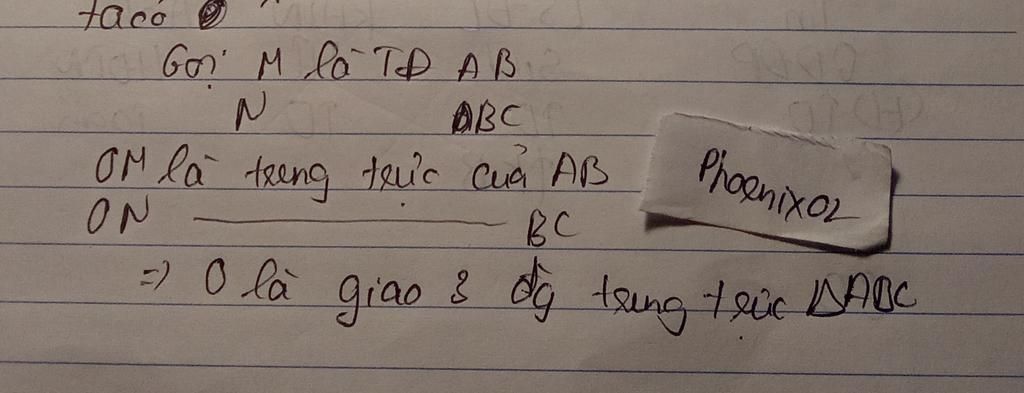 ta có
Gọi M là TĐ AB
N BC
OM là trung trực của AB
ON ——— BC
Phoenix02
=> O là giao 3 đg trung trực ΔABC